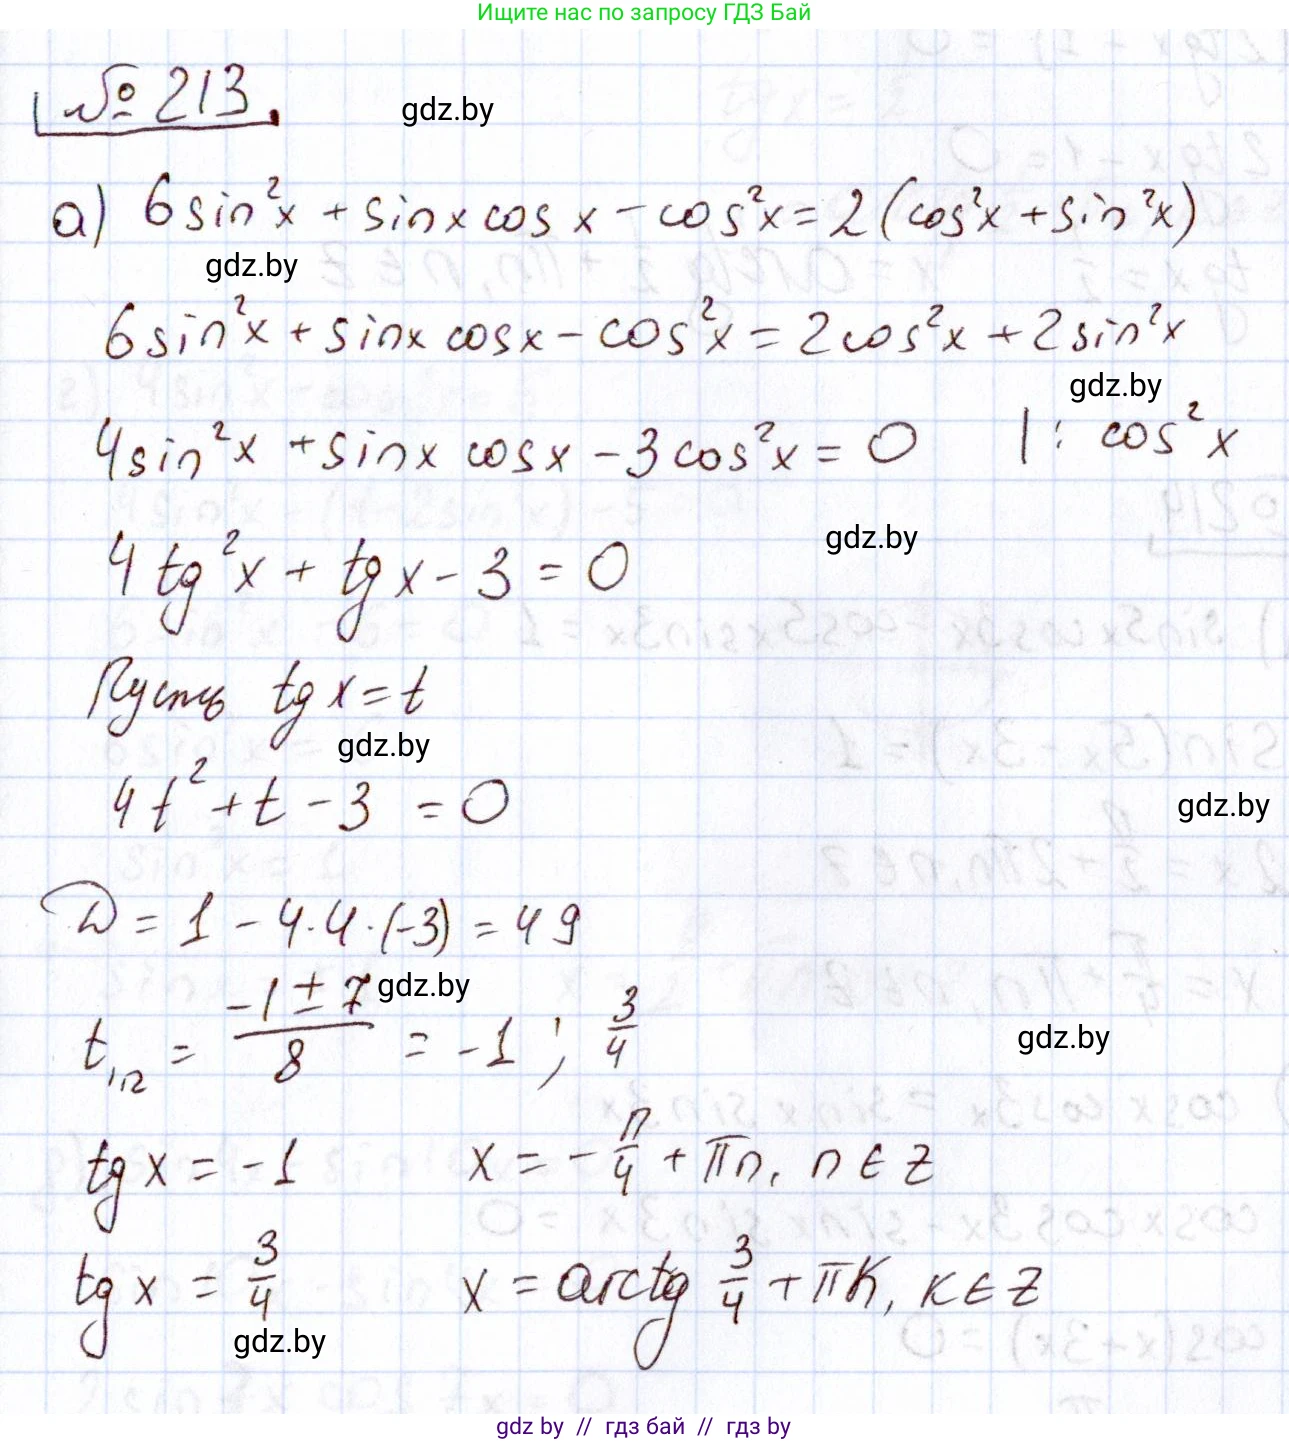 Ищите нас по запросу ГДЗ Бай
№ 213.
gdz.by
а) 6sin²x + sinx cos x - cos²x = 2(cos²x + sin²x)
gdz.by
6sin²x + sinx cosx - cos²x = 2cos²x + 2sin²x
gdz.by
4sin²x + sinx cosx - 3cos²x = 0 | : cos²x
gdz.by
4 tg²x + tgx - 3 = 0
Пусть tgx = t
gdz.by
4t² + t - 3 = 0
gdz.by
D = 1 - 4·4·(-3) = 49
gdz.by
t₁,₂ = (-1 ± 7)/8 = -1 ; 3/4
gdz.by
tgx = -1 x = -π/4 + πn, n ∈ Z
tgx = 3/4 x = arctg 3/4 + πk, k ∈ Z
gdz.by
gdz by // гдз бай // гдз by